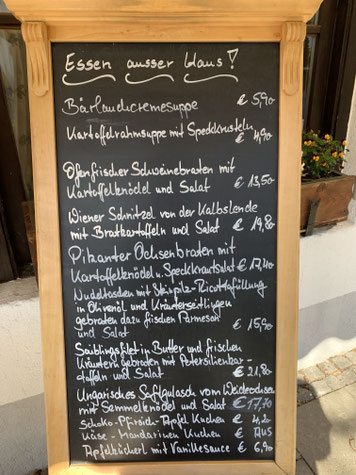 Essen ausser Haus!
Bärlauchcremesuppe € 5,90
Kartoffelrahmsuppe mit Speckkrusteln € 4,90
Ofenfrischer Schweinebraten mit
Kartoffelknödel und Salat € 13,50
Wiener Schnitzel von der Kalbslende
mit Bratkartoffeln und Salat € 19,80
Pikanter Ochsenbraten mit
Kartoffelknödel u. Speckkrautsalat € 17,40
Nudeltaschen mit Steinpilz-Ricottafüllung
in Olivenöl und Kräuterseitlingen
gebraten dazu frischen Parmesan
und Salat € 15,90
Saiblingsfilet in Butter und frischen
Kräutern gebraten mit Petersilienkar-
toffeln und Salat € 21,80
Ungarisches Saftgulasch vom Weideochsen
mit Semmelknödel und Salat € 17,70
Schoko-Pfirsich-Apfel Kuchen € 4,20
Käse-Mandarinen Kuchen € AUS
Apfelkücherl mit Vanillesauce € 6,90